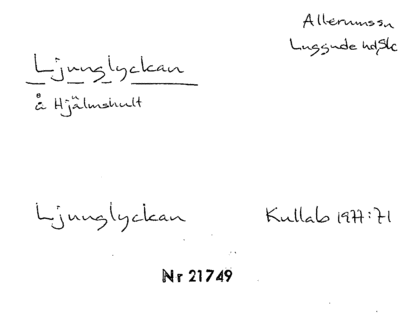 Allerums sn
Luggude hd, Sk
Ljunglyckan
å Hjälmshult
Ljunglyckan
Kullab 1977:71
Nr 21749